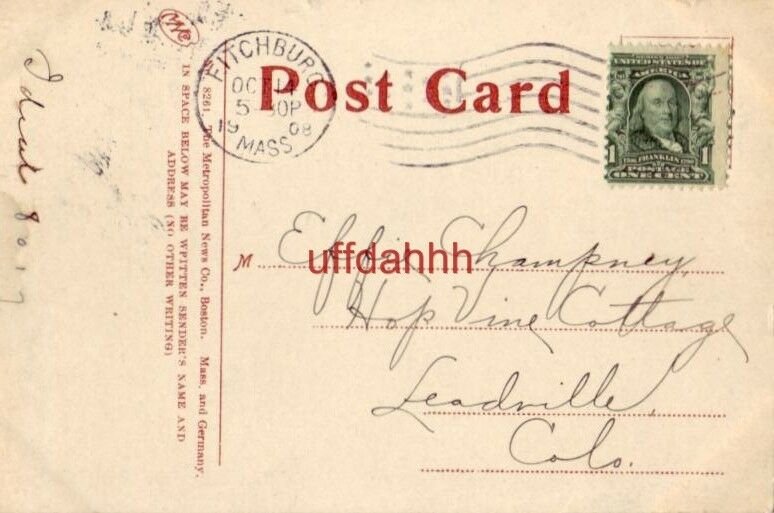 MNCo
FITCHBURG
OCT 14
5 30P
1908
MASS.
Post Card
UNITED STATES OF
AMERICA
1 FRANKLIN 1
POSTAGE
ONE CENT
8261 The Metropolitan News Co., Boston. Mass. and Germany.
IN SPACE BELOW MAY BE WPITTEN SENDER'S NAME AND
ADDRESS (NO OTHER WRITING)
M Effie Champney,
uffdahhh
Hop Vine Cottage
Leadville,
Colo.